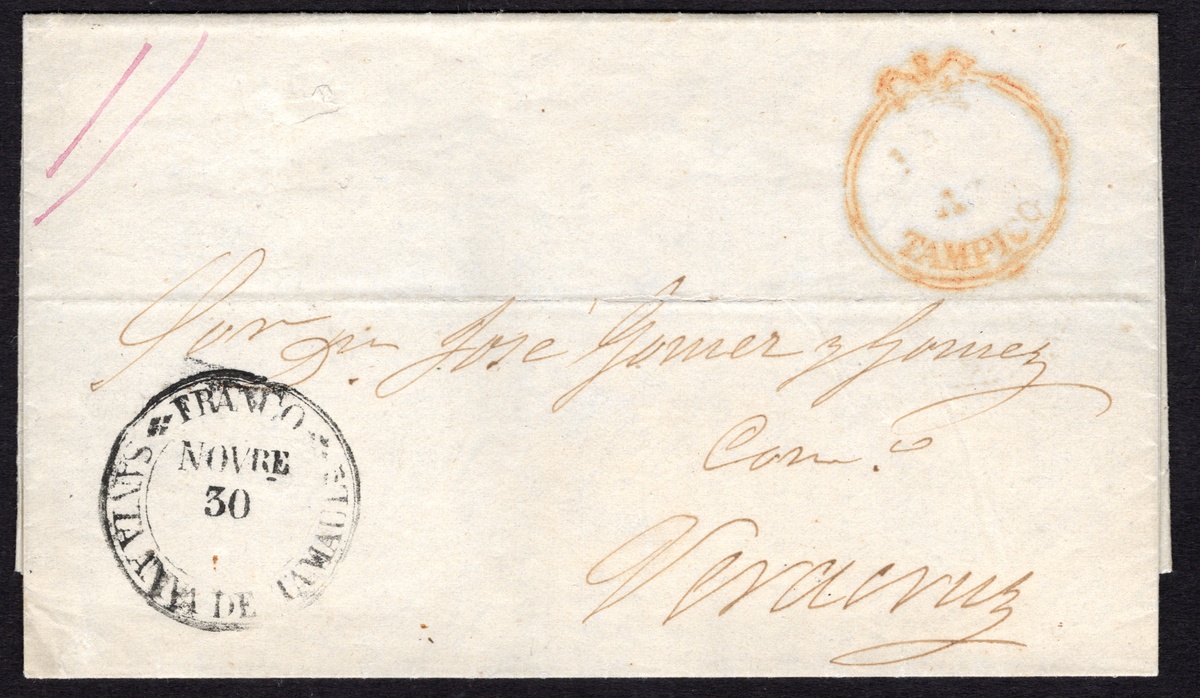 A
TAMPICO
Sor Dn. José Gomez y Gomez
Com.o
Veracruz
FRANCO
NOVRE
30
SANTA ANNA DE TAMAULS